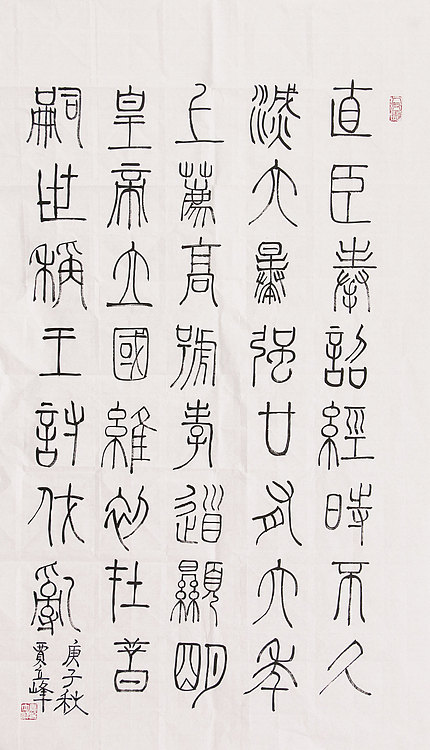 直臣奉詔經時不久
滅六暴强廿有六年
上薦高號孝道顯明
皇帝立國維初在昔
嗣世稱王討伐亂
庚子秋
賈峰